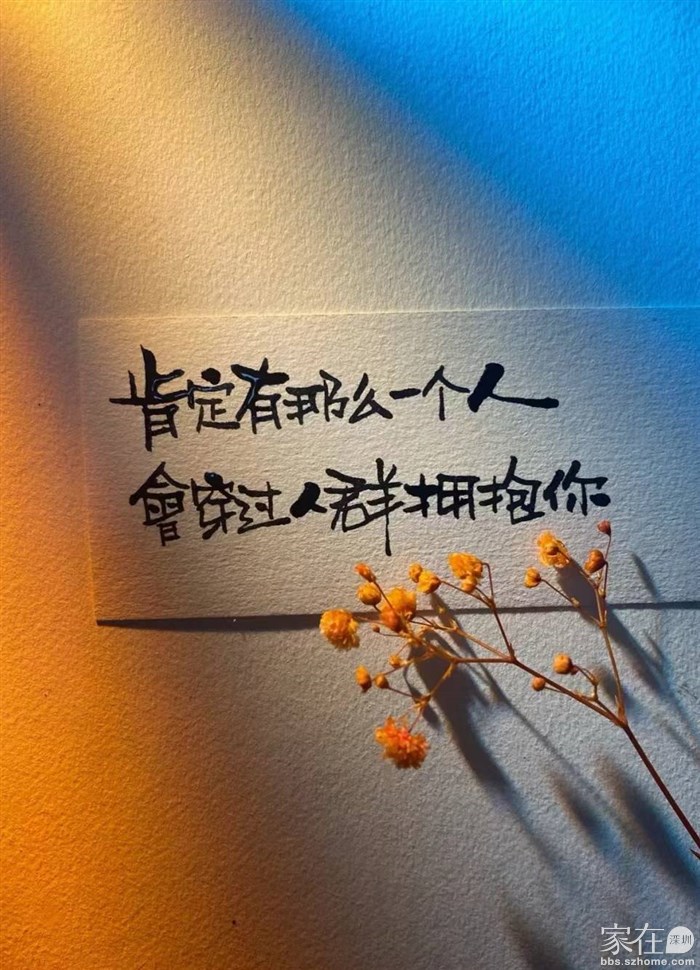 肯定有那么一个人
會穿过人群拥抱你
家在深圳
bbs.szhome.com